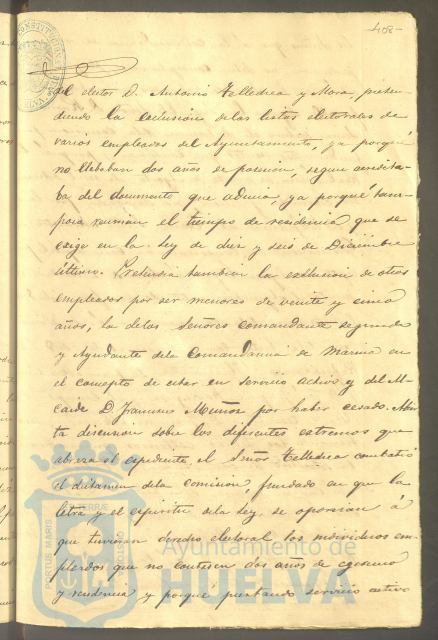 408-
del elector D. Antonio Telledrea y Mora, preten-
diendo la exclusion de las listas electorales de
varios empleados del Ayuntamiento, ya porque
no llebaban dos años de posesion, segun acredita-
ba del documento que aducia, ya porque tam-
poco reunian el tiempo de residencia que se
exige en la ley de diez y seis de Diciembre
último. Pretendia tambien la exclusion de otros
empleados por ser menores de veinte y cinco
años, la de los Señores Comandante segundo
y Ayudante de la Comandancia de Marina en
el concepto de estar en servicio activo y del Al-
caide D. Francisco Muñoz por haber cesado. Abier-
ta discusion sobre los diferentes extremos que
abraza el expediente, el Señor Telledrea combatió
el dictamen de la comision, fundado en que la
letra y el espiritu de la ley, se oponian á
que tuvieran derecho electoral los individuos em-
pleados que no contasen dos años de egercicio
y residencia y porque prestando servicio activo
PORTUS MARIS
Ayuntamiento de
HUELVA